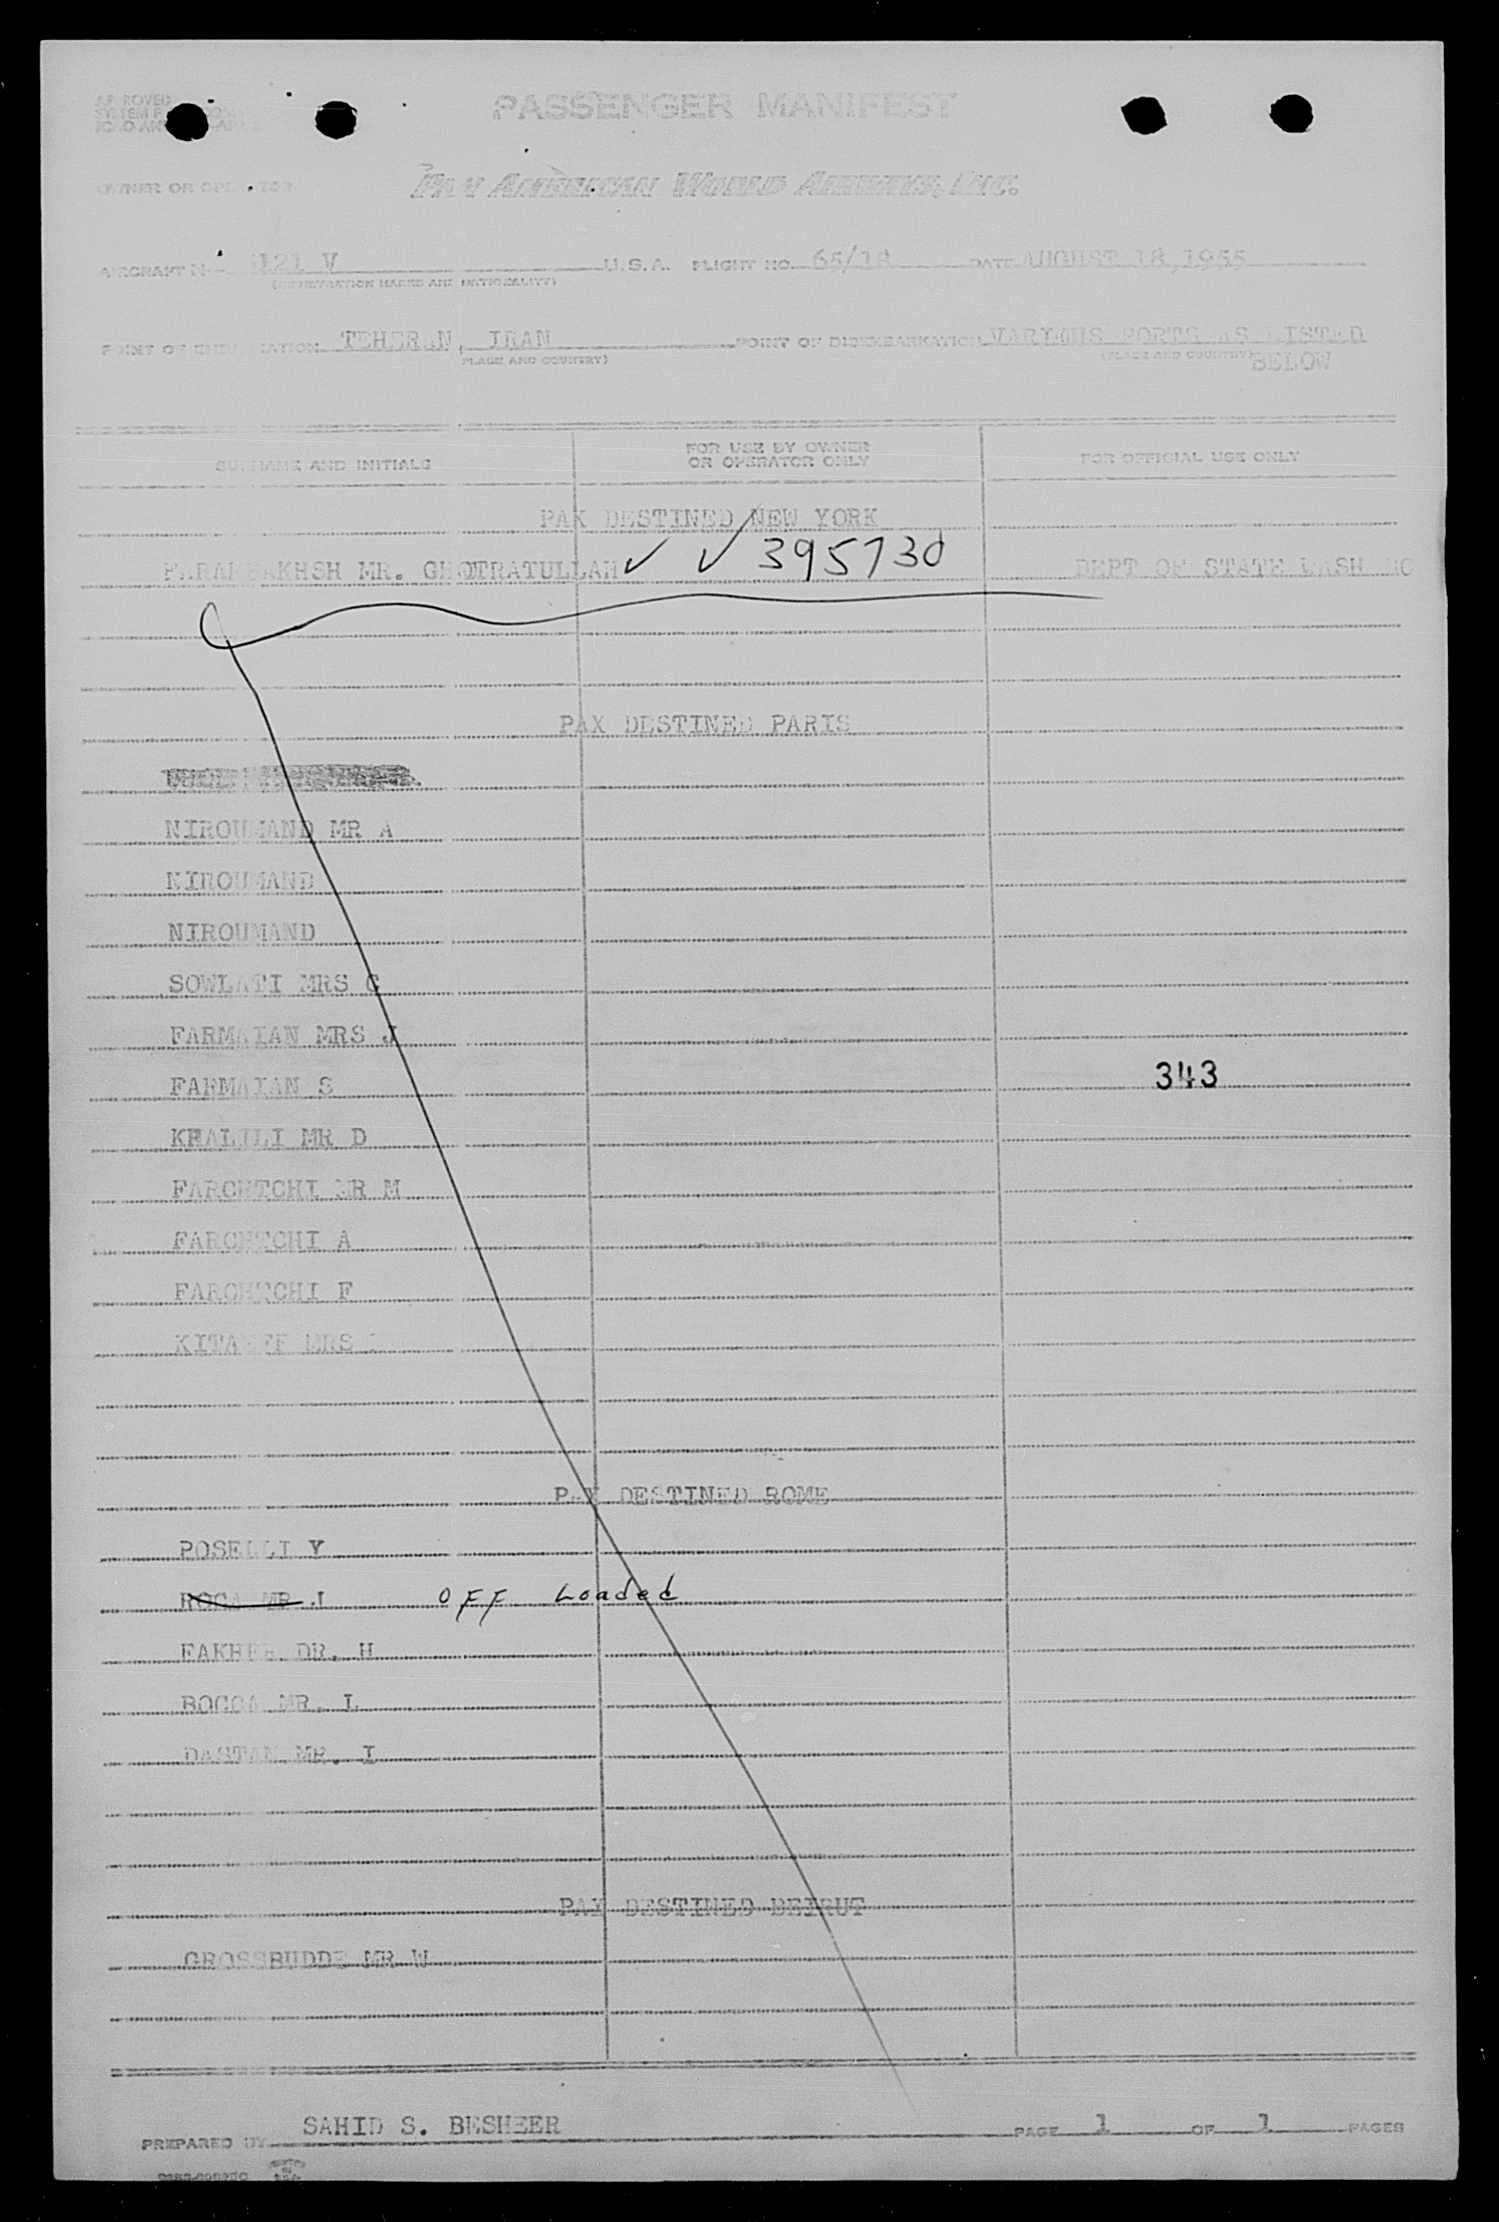 PASSENGER MANIFEST
OWNER OR OPERATOR
PAN AMERICAN WORLD AIRWAYS, INC.
AIRCRAFT 121 V U.S.A. FLIGHT NO. 65/18 DATE AUGUST 18,1955
(REGISTRATION MARKS AND NATIONALITY)
POINT OF EMBARKATION TEHERAN, IRAN POINT OF DISEMBARKATION VARIOUS PORTS AS LISTED
(PLACE AND COUNTRY) (PLACE AND COUNTRY) BELOW
SURNAME AND INITIALS FOR USE BY OWNER OR OPERATOR ONLY FOR OFFICIAL USE ONLY
PAX DESTINED NEW YORK
MR. GHOTRATULLAH ✓ ✓ 395730 DEPT OF STATE WASH
PAX DESTINED PARIS
NIROUMAND MR A
NIROUMAND
NIROUMAND
SOWLATI MRS G
FARMAIAN MRS J
FARMAIAN S 343
KHALILI MR D
FARCHTCHI MR M
FARCHTCHI A
FARCHTCHI F
MRS
PAX DESTINED ROME
POSELLI Y
ROCA MR J OFF Loaded
FAKHER DR. H
BOCCA MR. L
DASTAN MR. I
PAX DESTINED BEIRUT
GROSSBUDDE MR W
PREPARED BY SAHID S. BESHEER PAGE 1 OF 1 PAGES